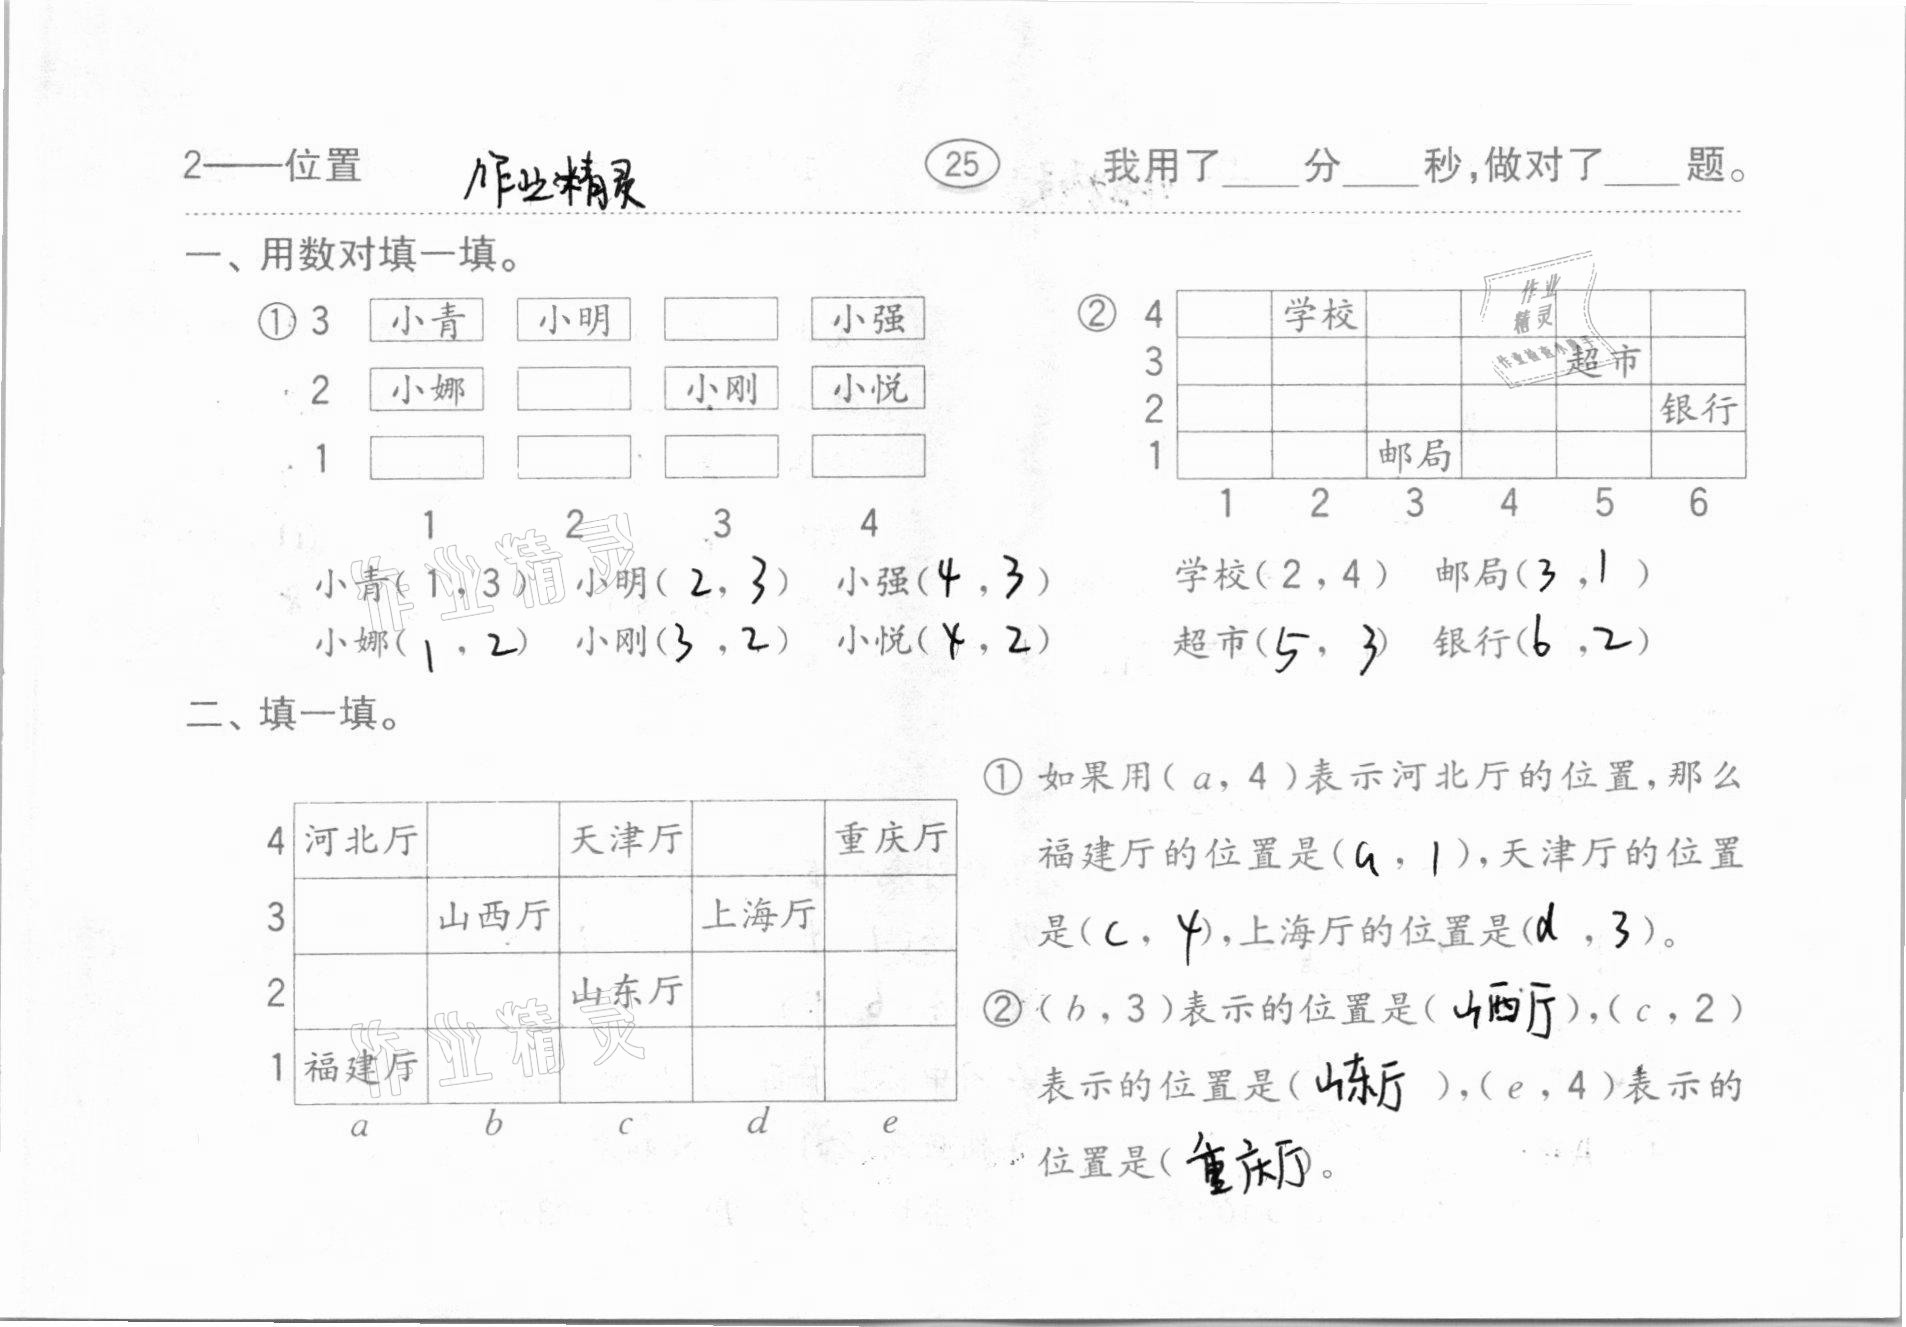 2——位置 作业精灵 25 我用了____分____秒,做对了____题。
一、用数对填一填。
① 3 小青 小明 小强
2 小娜 小刚 小悦
1
1 2 3 4
小青(1,3) 小明(2,3) 小强(4,3)
小娜(1,2) 小刚(3,2) 小悦(4,2)
② 4 学校
3 超市
2 银行
1 邮局
1 2 3 4 5 6
学校(2,4) 邮局(3,1)
超市(5,3) 银行(6,2)
作业
精灵
作业精灵
二、填一填。
4 河北厅 天津厅 重庆厅
3 山西厅 上海厅
2 山东厅
1 福建厅
a b c d e
作业精灵
① 如果用(a,4)表示河北厅的位置,那么
福建厅的位置是(a,1),天津厅的位置
是(c,4),上海厅的位置是(d,3)。
② (b,3)表示的位置是(山西厅),(c,2)
表示的位置是(山东厅),(e,4)表示的
位置是(重庆厅)。